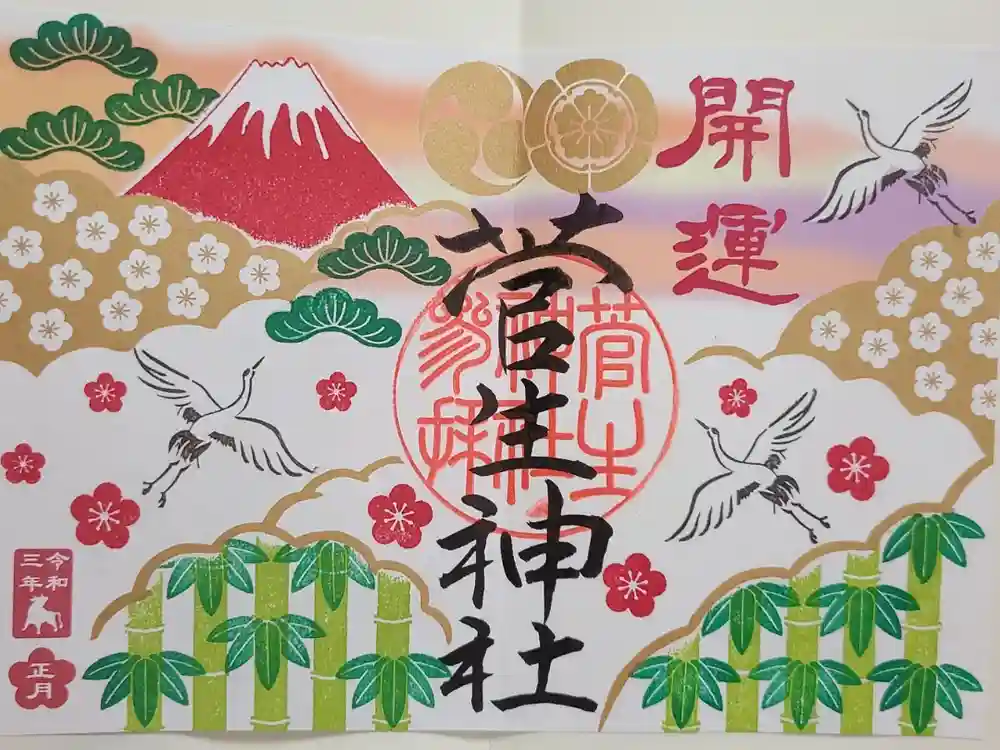 開運
菅生神社
菅生
神社
参拝
令和
三年
正月